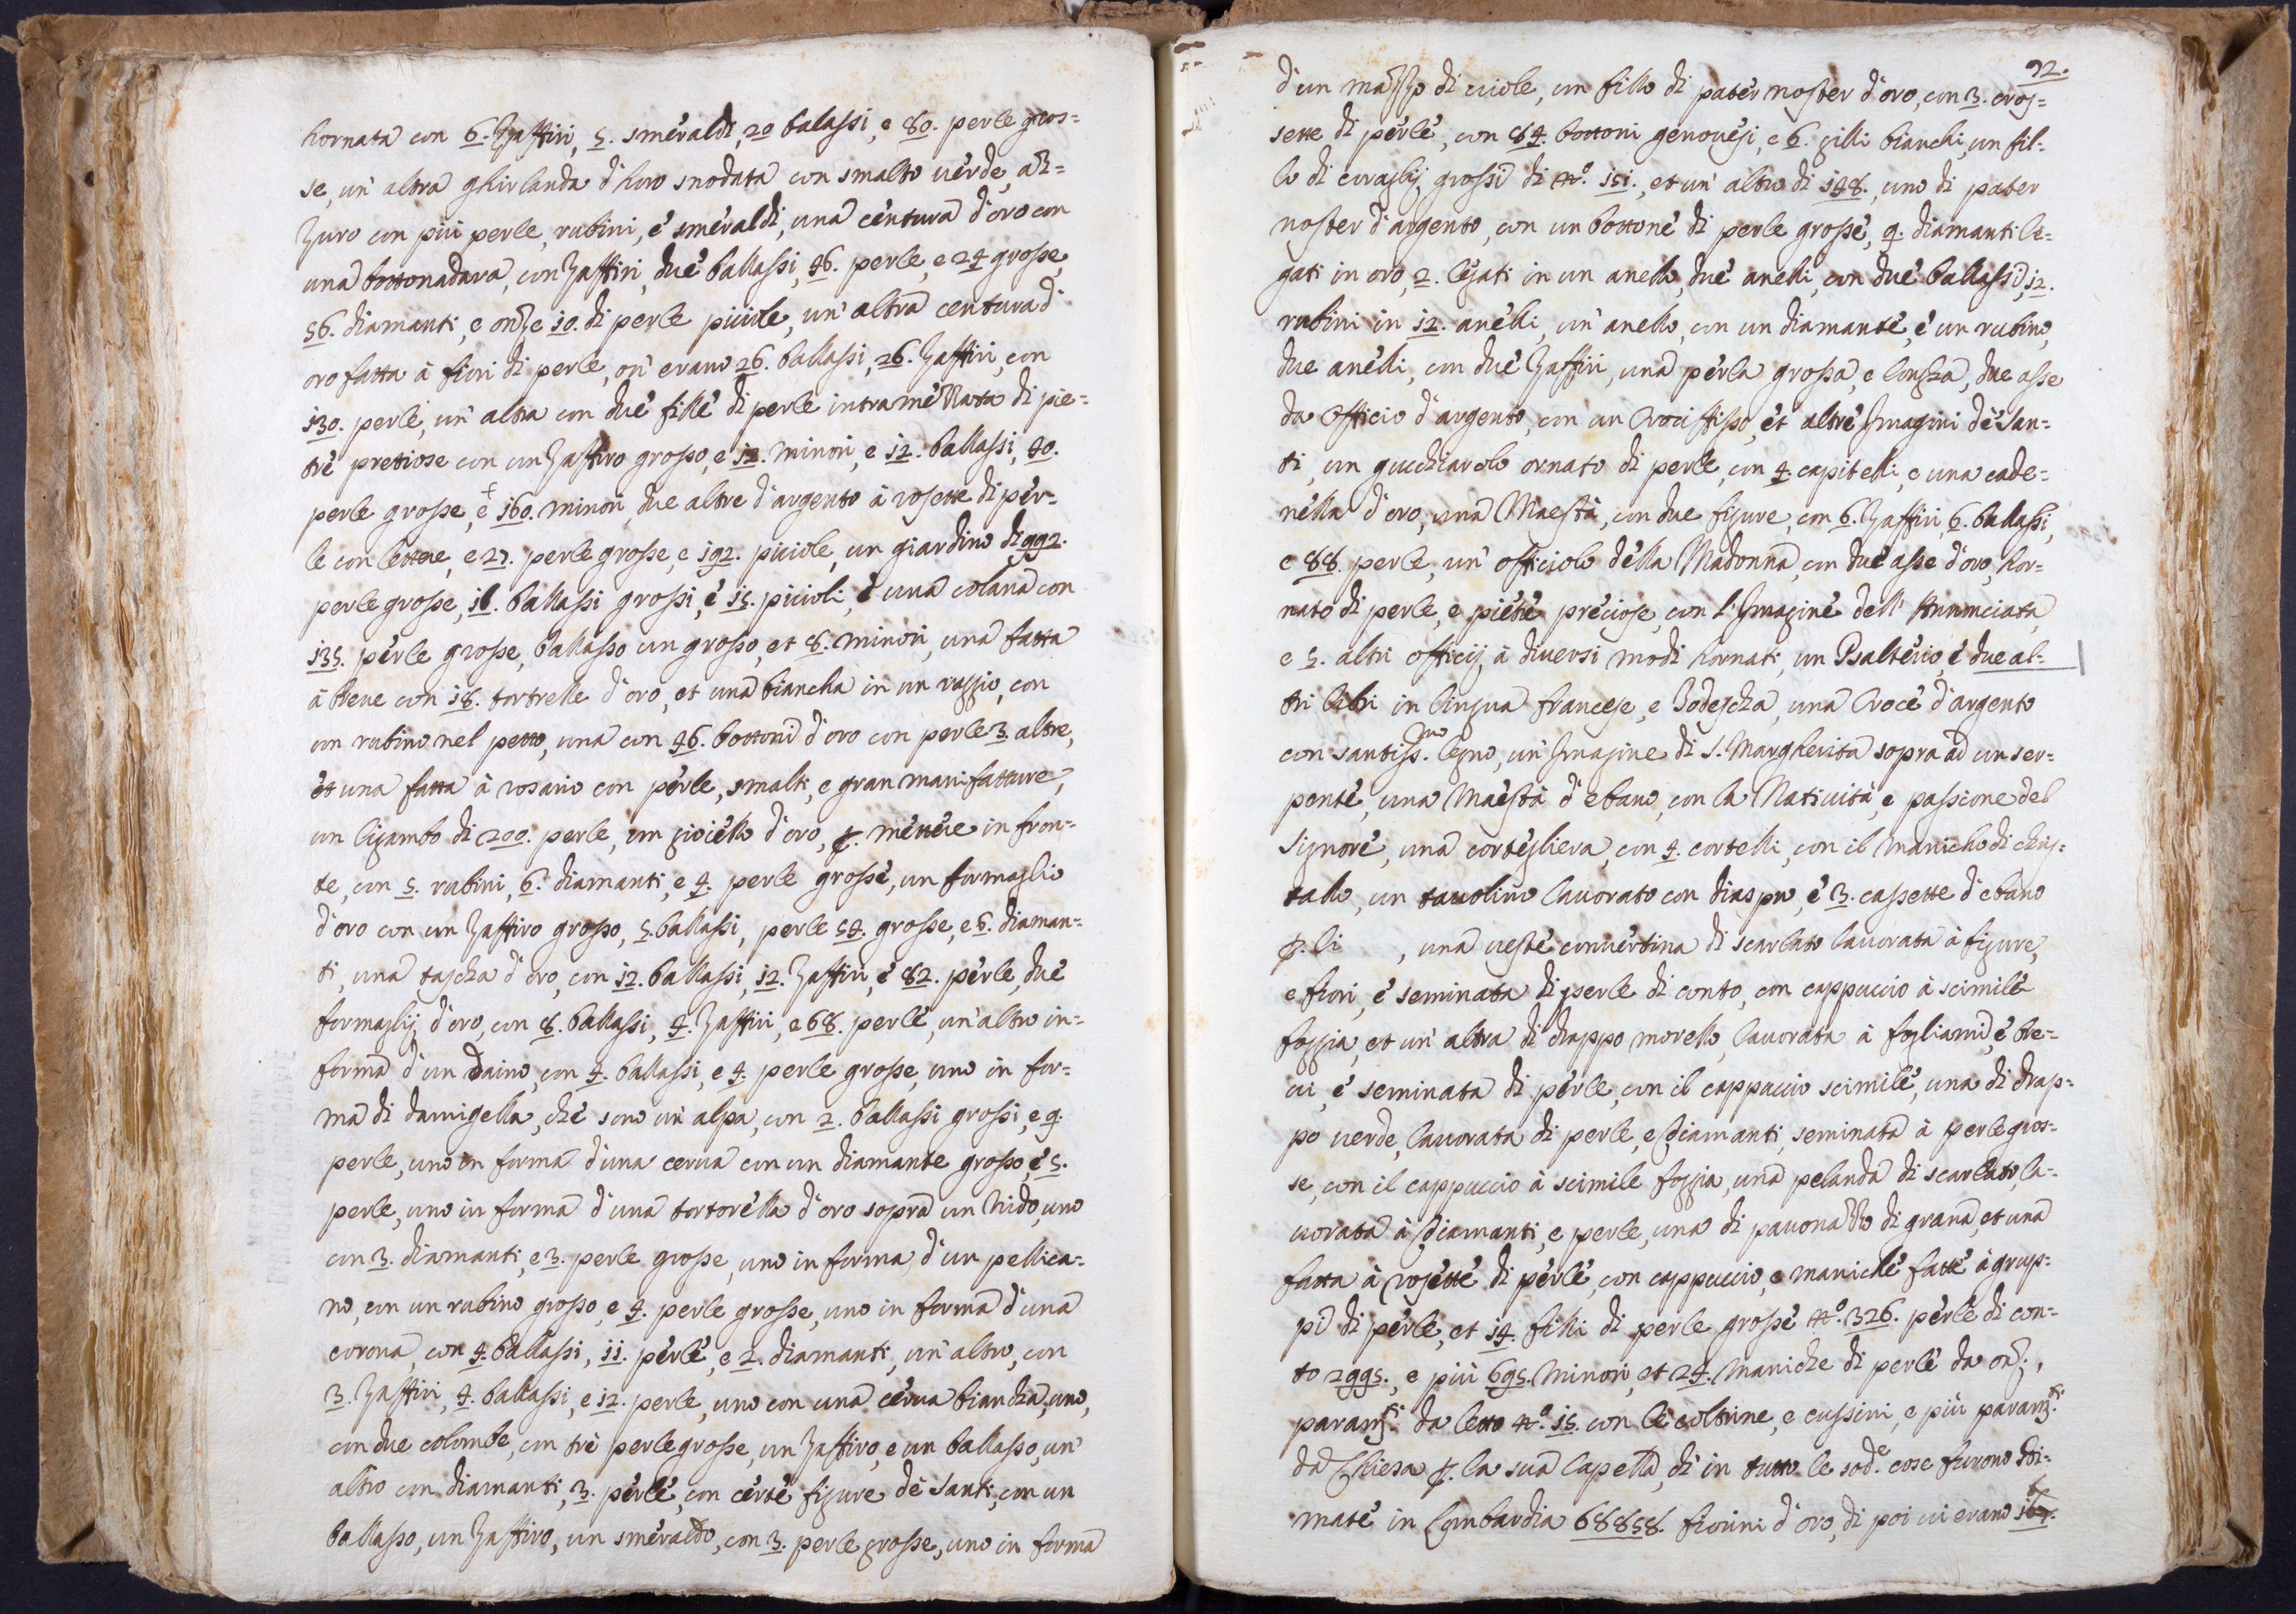 hornata con 6. Zaffiri, 5. smeraldi, 20 balassi, e 80. perle gros=
se, un' altra ghirlanda d'horo snodata con smalto uerde, az=
zuro con piu perle, rubini, è smeraldi, una centura d'oro con
una bottonadara, con Zaffiri, due ballassi, 46. perle, e 24 grosse,
56. diamanti, e onze 10. di perle piciole, un' altra centura d'
oro fatta à fiori di perle, on' erano 26. ballassi, 26. Zaffiri, con
130. perle, un' altra con due fille di perle intramezzata di pie=
tre pretiose con un Zaffiro grosso, e 12. minori, e 12. ballassi, 40.
perle grosse, e 160. minori, due altre d'argento à rosette di per=
le con lettere, e 27. perle grosse, e 192. piciole, un giardino di 992.
perle grosse, 18. ballassi grossi, è 15. picioli, è una colana con
135. perle grosse, ballasso un grosso, et 8. minori, una fatta
à breue con 18. tortrelle d'oro, et una biancha in un raggio, con
un rubino nel petto, una con 46. bottoni d'oro con perle 3. altre,
et una fatta à rosario con perle, smalti, e gran manifatture,
un ligambo di 200. perle, un gioiello d'oro, p. mettere in fron=
te, con 5. rubini, 6. diamanti, e 4. perle grosse, un formaglio
d'oro con un Zaffiro grosso, 5. ballassi, perle 54. grosse, e 6. diaman=
ti, una tascha d'oro, con 12. ballassi, 12. Zaffiri, è 82. perle, due
formaglij d'oro, con 8. ballassi, 4. Zaffiri, e 68. perle, un' altro in=
forma d'un daino, con 4. ballassi, e 4. perle grosse, uno in for=
ma di damigella, che sono un' alpa, con 2. ballassi grossi, e 9.
perle, uno in forma d'una cerua con un diamante grosso, è 5.
perle, uno in forma d'una tortorella d'oro sopra un nido, uno
con 3. diamanti, e 3. perle grosse, uno in forma d'un pellica=
no, con un rubino grosso, e 4. perle grosse, uno in forma d'una
corona, con 4. ballassi, 11. perle, e 2. diamanti, un' altro, con
3. Zaffiri, 4. ballassi, e 12. perle, uno con una cerua biancha, uno,
con due colombe, con trè perle grosse, un Zaffiro, e un ballasso, un'
altro con diamanti, 3. perle, con certe figure de Santi, con un
ballasso, un Zaffiro, un smeraldo, con 3. perle grosse, uno in forma
92.
d'un mazzo di uiole, un fillo di pater noster d'oro, con 3. cros=
sette di perle, con 84. bottoni genouesi, e 6. gilli bianchi, un fil=
lo di coraglij grossi di n.º 151., et un' altro di 148., uno di pater
noster d'argento, con un bottone di perle grosse, 9. diamanti le=
gati in oro, 2. legati in un anello, due anelli, con due ballassi, 12.
rubini in 12. anelli, un' anello, con un diamante, è un rubino,
due anelli, con due Zaffiri, una perla grossa, e longha, due asse
da Officio d'argento, con un Crociffisso, et altre Imagini de San=
ti, un gucchiarolo ornato di perle, con 4. capitelli, e una cade=
nella d'oro, una Maestà, con due figure, con 6. Zaffiri, 6. ballassi,
e 88. perle, un' officiolo della Madonna, con due asse d'oro, hor=
nato di perle, e pietre preciose, con l'Imagine dell' Annunciata,
e 5. altri officij à diuersi modi hornati, un Psalterio, è due al=
tri libri in lingua francese, e Todescha, una Croce d'argento
con santiss.mo legno, un' Imagine di S. Margherita sopra ad un ser=
pente, una Maestà d'ebano, con la Natiuità, e passione del
Signore, una corteglliera, con 4. cortelli, con il manicho di chris=
tallo, un tauolino lauorato con diaspro, è 3. cassette d'ebano
p. li , una ueste conuertina di scarlato lauorata à figure,
e fiori, è seminata di perle di conto, con cappuccio à scimile
foggia, et un' altra di drappo morello, lauorata à fogliami, è bre=
ui, è seminata di perle, con il cappuccio scimile, una di drap=
po uerde, lauorata di perle, e diamanti, seminata à perle gros=
se, con il cappuccio à scimile foggia, una pelanda di scarlato, la=
uorata à diamanti, e perle, una di pauonazzo di grana, et una
fatta à rosette di perle, con cappuccio, e maniche fatte à grup=
pi di perle, et 14. filli di perle grosse n.º 326. perle di con=
to 2995., e più 695. minori, et 24. maniche di perle da onz.,
param.ti da letto n.º 15. con le coltrine, e cussini, e più param.ti
da Chiesa p. la sua Capella, di in tutto le sod.e cose furono sti=
mate in Lombardia 68858. fiorini d'oro, di poi ui erano